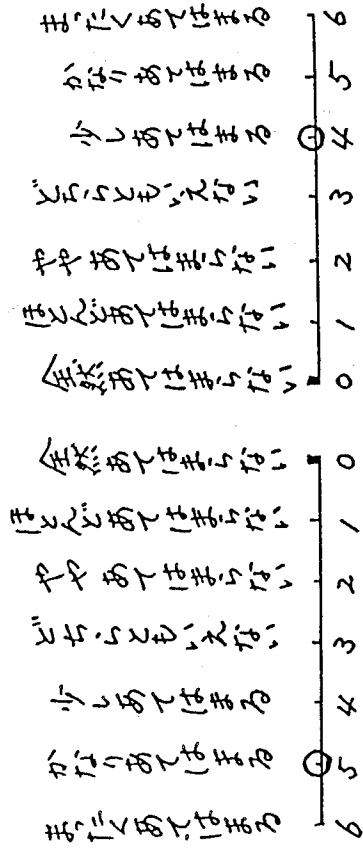 まったくあてはまる 6
かなりあてはまる 5
少しあてはまる 4
どちらともいえない 3
ややあてはまらない 2
ほとんどあてはまらない 1
全然あてはまらない 0
全然あてはまらない 0
ほとんどあてはまらない 1
ややあてはまらない 2
どちらともいえない 3
少しあてはまる 4
かなりあてはまる 5
まったくあてはまる 6